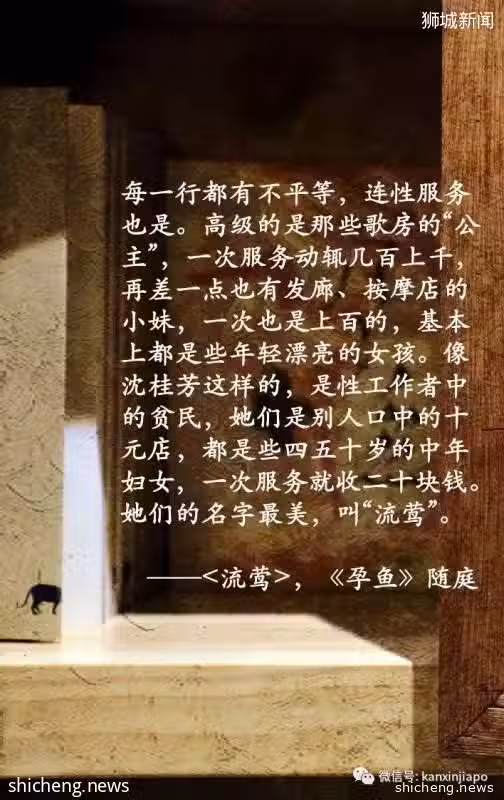 狮城新闻
每一行都有不平等，连性服务
也是。高级的是那些歌房的“公
主”，一次服务动辄几百上千，
再差一点也有发廊、按摩店的
小妹，一次也是上百的，基本
上都是些年轻漂亮的女孩。像
沈桂芳这样的，是性工作者中
的贫民，她们是别人口中的十
元店，都是些四五十岁的中年
妇女，一次服务就收二十块钱。
她们的名字最美，叫“流莺”。
——<流莺>，《孕鱼》随庭
微信号: kanxinjiapo
shicheng.news
shicheng.news